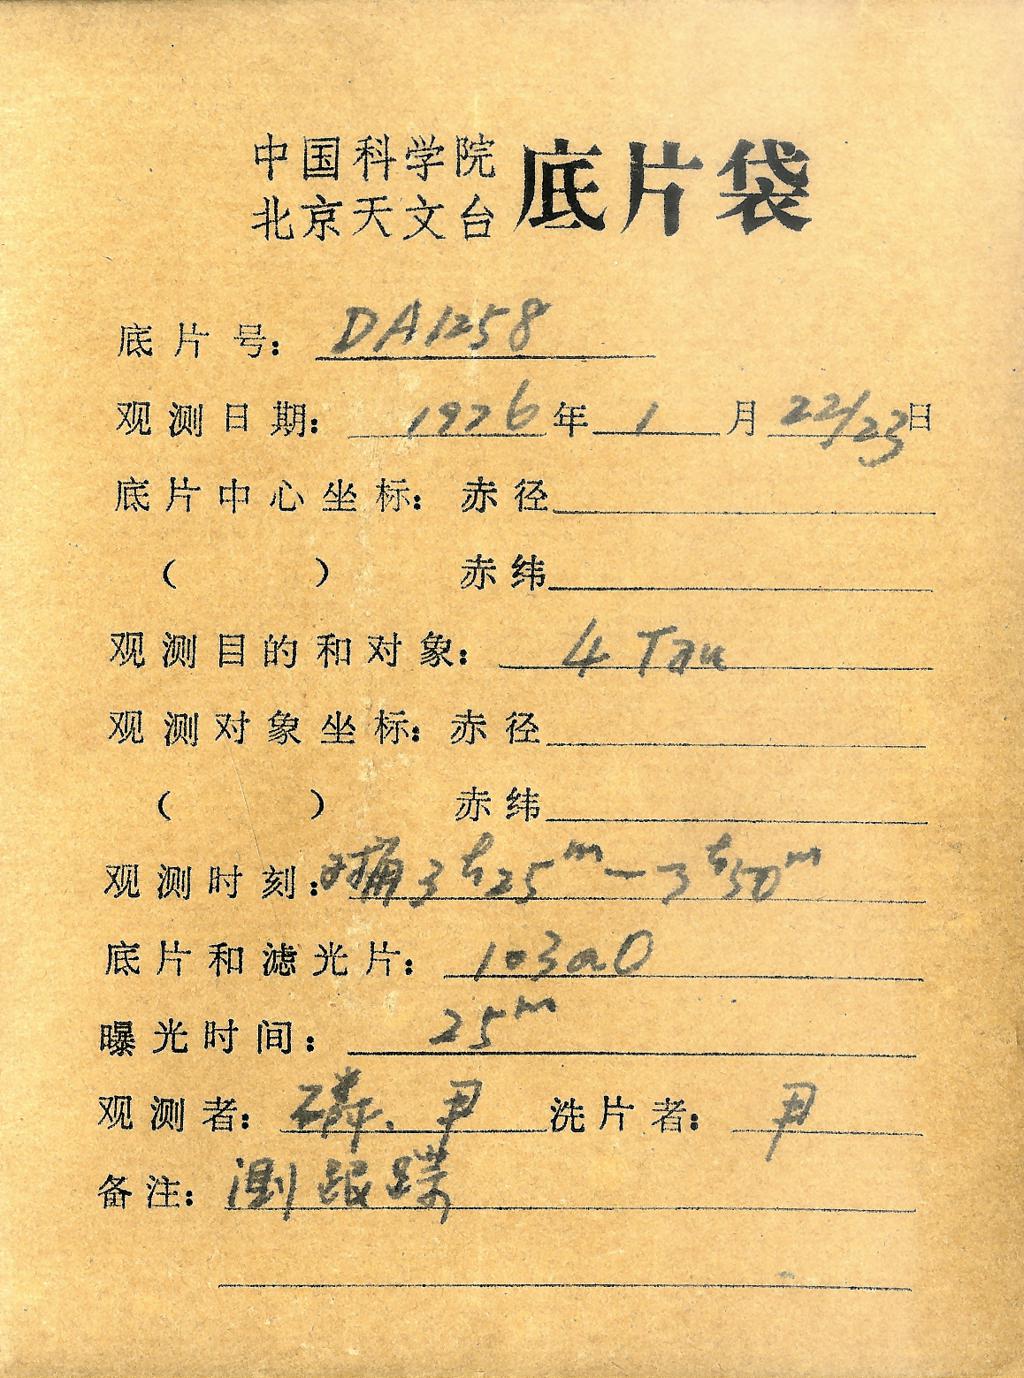 中国科学院
北京天文台 底片袋
底片号: DA1258
观测日期: 1976年1月22/23日
底片中心坐标: 赤径
( ) 赤纬
观测目的和对象: 4 Tau
观测对象坐标: 赤径
( ) 赤纬
观测时刻: 3h25m—3h50m
底片和滤光片: 103aO
曝光时间: 25m
观测者: 磷、尹 洗片者: 尹
备注: 测跟踪